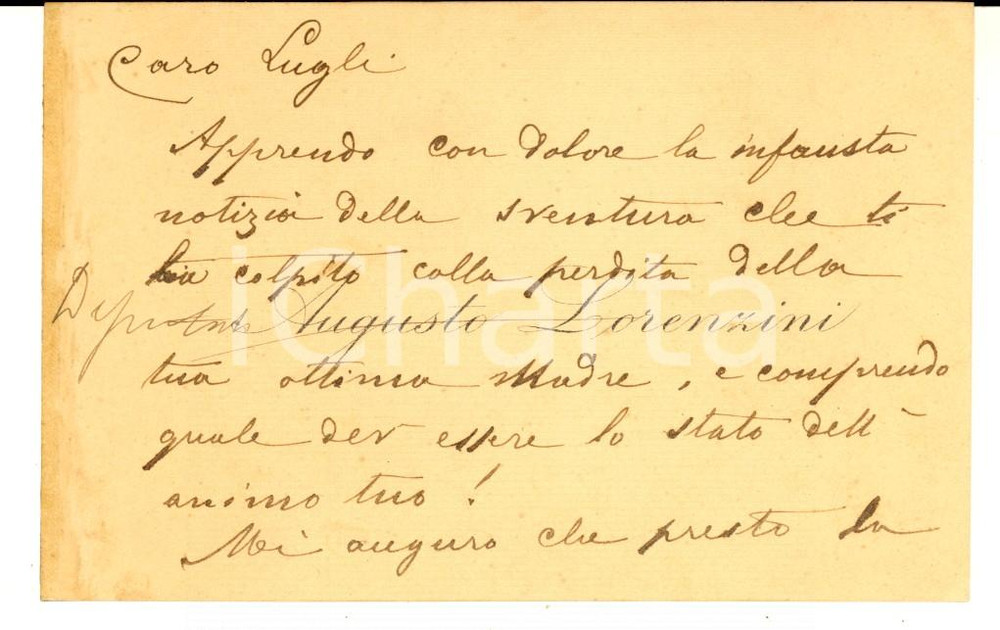 Caro Lugli
Apprendo con dolore la infausta
notizia della sventura che ti
ha colpito colla perdita della
Deputato Augusto Lorenzini
tua ottima Madre, e comprendo
quale dev essere lo stato dell'
animo tuo!
Mi auguro che presto la
iCharta